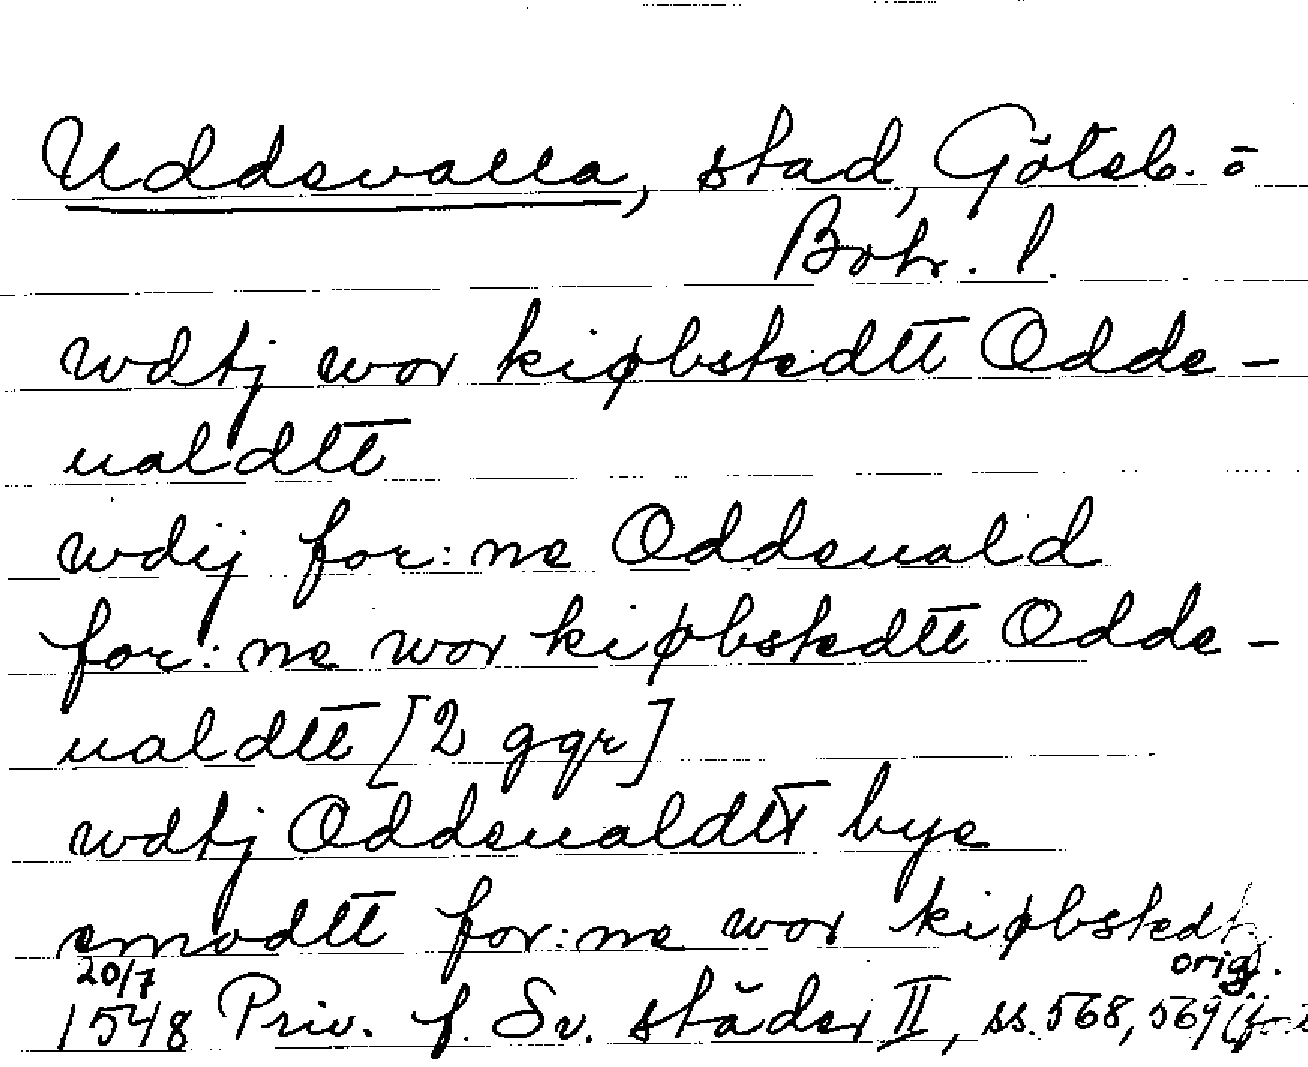 Uddevalla, stad, Göteb. o
Boh. l.
wdtj wor kiøbstedtt Odde-
ualdtt
wdij for:ne Oddeuald
for:ne wor kiøbstedtt Odde-
ualdtt [2 ggr]
wdtj Oddeualdtt bye
emodtt for:ne wor kiøbstedt
20/7 orig.
1548 Priv. f. Sv. städer II, ss. 568, 569